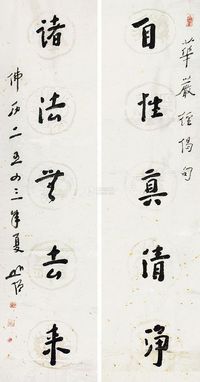 華嚴經偈句
自性真清淨
诸法無去来
佛历二五四三年夏 明旸